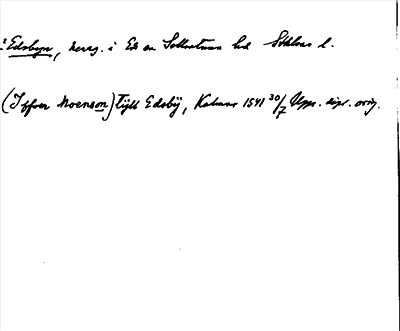 Edsbyn, herg. i Ed sn Sollentuna hd Sthlms l.
(Iffver Moenson) tijll Edsbÿ, Kalmar 1541 30/7 Upps. dipl. orig.